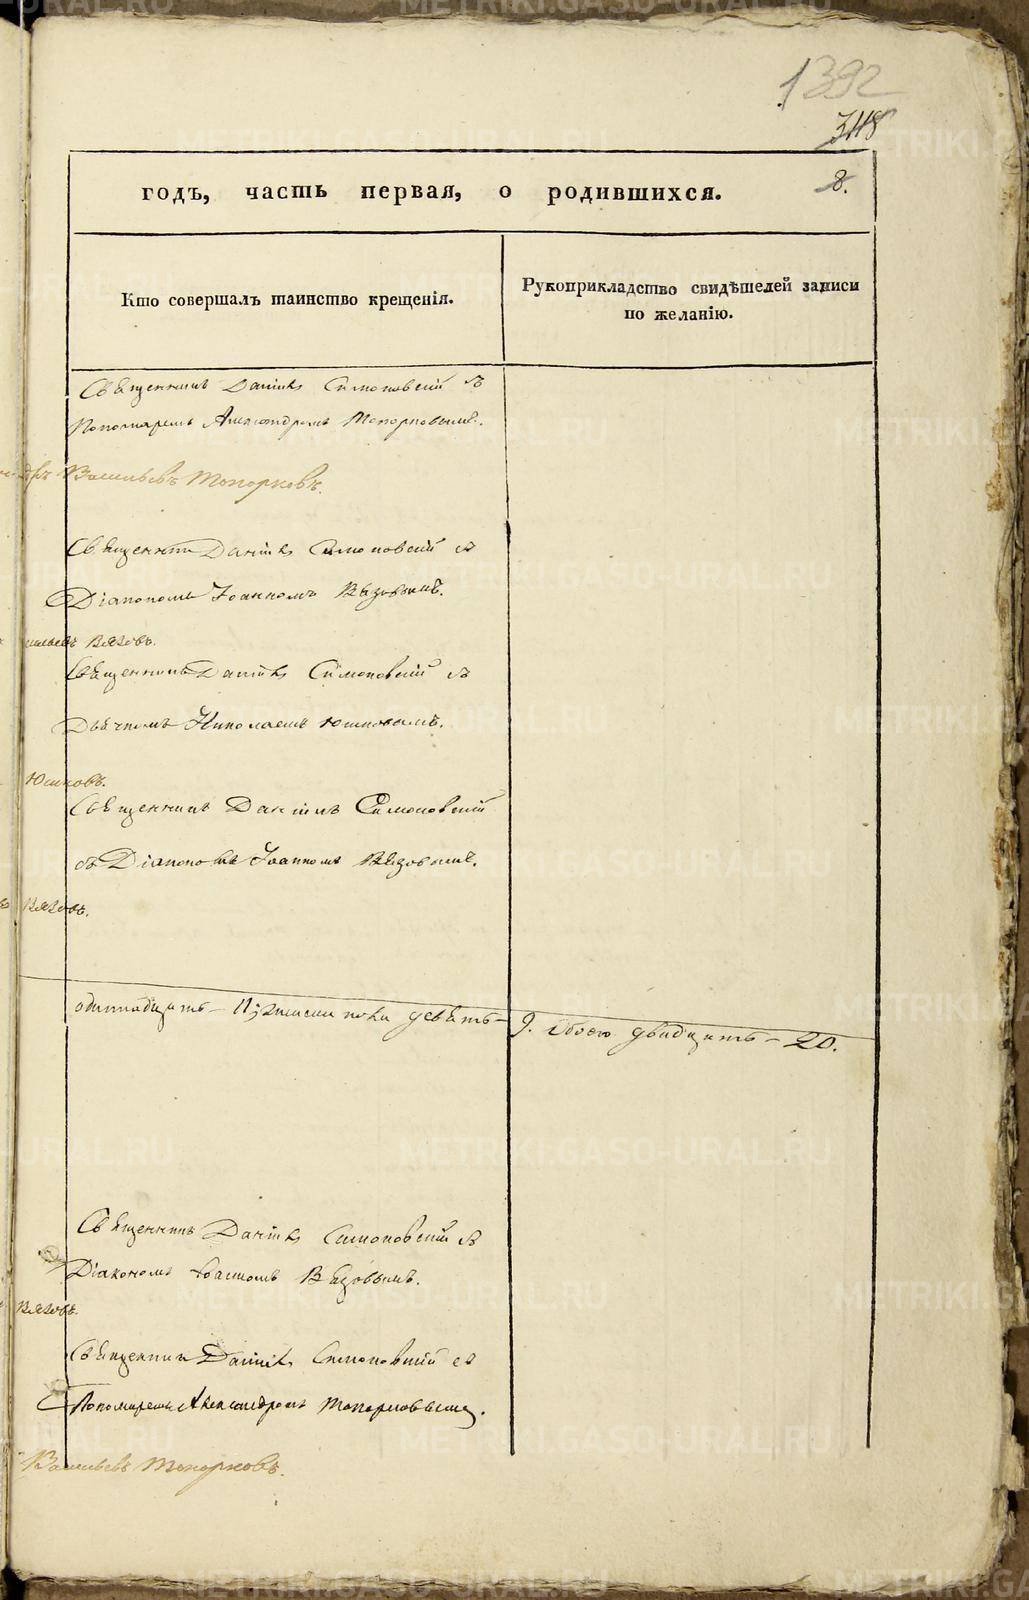 1392
3118
8.
годъ, часть первая, о родившихся.
Кто совершалъ таинство крещенія.
Рукоприкладство свидѣтелей записи
по желанію.
Священникъ Даніилъ Симоновскій съ
Пономаремъ Александромъ Топорковымъ.
Васильевъ Топорковъ.
Священникъ Даніилъ Симоновскій съ
Діакономъ Іоанномъ Вязовымъ.
Вязовъ.
Священникъ Даніилъ Симоновскій съ
Дьячкомъ Николаемъ Юшковымъ.
Юшковъ.
Священникъ Даніилъ Симоновскій
съ Діакономъ Іоанномъ Вязовымъ.
Вязовъ.
одиннадцать – 11, женска пола девять – 9. обоего двадцать – 20.
Священникъ Даніилъ Симоновскій съ
Діакономъ Іоанномъ Вязовымъ.
Вязовъ.
Священникъ Даніилъ Симоновскій съ
Пономаремъ Александромъ Топорковымъ.
Васильевъ Топорковъ.
METRIKI.GASO-URAL.RU